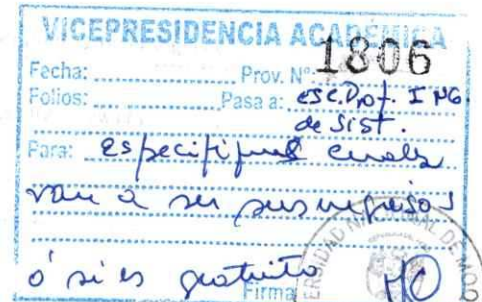 VICEPRESIDENCIA ACADÉMICA
1806
Fecha: Prov. Nº
Folios: Pasa a: esc.Prof. ING.
de Sist.
Para: especifique cuales
van a ser sus ingresos
ó si es gratuito
Firma
NACIONAL DE MOQ